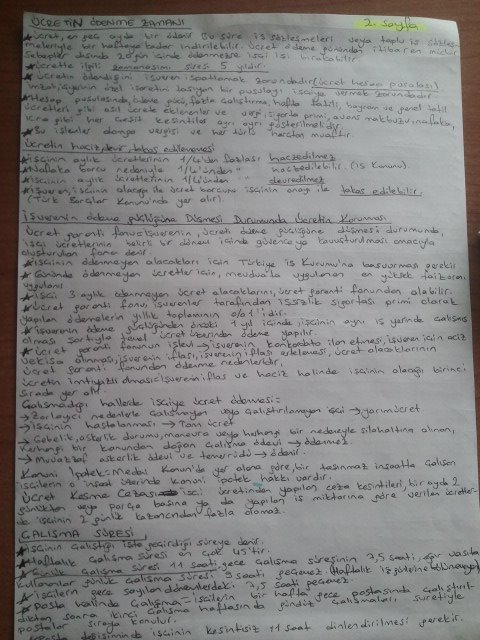 ÜCRETİN ÖDENME ZAMANI
2. sayfa
★ücret, en geç ayda bir ödenir. Bu süre iş sözleşmeleri veya toplu iş sözleş-
meleriyle bir haftaya kadar indirilebilir. Ücret ödeme gününden itibaren mücbir
sebepler dışında 20 gün içinde ödenmezse işçi işi bırakabilir
★ücretle ilgili zamanaşımı süresi 5 yıldır.
★ücretin ödendiğini işveren ispatlamak zorundadır (ücret hesap pusulası)
imzalı, işyerinin özel işaretini taşıyan bir pusulayı işçiye vermek zorundadır.
★Hesap pusulasında, ödeme günü, fazla çalıştırma, hafta tatili, bayram ve genel tatil
ücretleri gibi asıl ücrete eklenenler ve vergi, sigorta primi, avans mahsubu, nafaka,
icra gibi her çeşit kesintiler ayrı ayrı gösterilmelidir.
★Bu işlemler damga vergisi ve her türlü harçtan muaftır.
Ücretin haciz, devir, takas edilememesi
★işçinin aylık ücretlerinin 1/4'den fazlası haczedilmez
★Nafaka borcu nedeniyle 1/4'ünden " haczedilebilir. (İş Kanunu)
★işçinin aylık ücretlerinin 1/4'ünden " devredilmez
★işveren, işçinin alacağı ile ücret borcunu işçinin onayı ile takas edilebilir.
(Türk Borçlar Kanunu'nda yer alır).
İşverenin ödeme güçlüğüne Düşmesi Durumunda Ücretin Korunması
Ücret garanti fonu: işverenin, ücreti ödeme güçlüğüne düşmesi durumunda,
işçi ücretlerinin belirli bir dönem içinde güvenceye kavuşturulması amacıyla
oluşturulan fona denir.
★işçinin ödenmeyen alacakları için Türkiye İş Kurumu'na başvurması gerekir
★Gününde ödenmeyen ücretler için, mevduata uygulanan en yüksek faiz oranı
uygulanır
★işçi 3 aylık ödenmeyen ücret alacaklarını, ücret garanti fonundan alabilir.
★Ücret garanti fonu, işverenler tarafından işsizlik sigortası primi olarak
yapılan ödemelerin yıllık toplamının %1'idir.
★işverenin ödeme güçlüğünden önceki 1 yıl içinde işçinin aynı iş yerinde çalışmış
olması şartıyla temel ücret üzerinden ödeme yapılır.
★Ücret garanti fonunun işlevi → işverenin konkordato ilan etmesi, işveren için aciz
vesikası alınması, işverenin iflası, işverenin iflası ertelemesi, ücret alacaklarının
ücret garanti fonundan ödenme nedenleridir.
Ücretin imtiyazlı olması: işverenin iflas ve haciz halinde işçinin alacağı birinci
sırada yer alır.
Çalışmadığı hallerde işçiye ücret ödenmesi=
→ Zorlayıcı nedenlerle çalışmayan veya çalıştırılmayan işçi → yarım ücret
→ işçinin hastalanması → Tam ücret
→ Gebelik, askerlik durumu, manevra veya herhangi bir nedenle silahaltına alınan,
herhangi bir kanundan doğan çalışma ödevi → ödenmez.
→ Muvazzaf askerlik ödevi ve temerrüdü → ödenir.
Kanuni İpotek= Medeni Kanun'da yer alana göre, bir taşınmaz inşaatta çalışan
işçilerin o inşaat üzerinde kanuni ipotek hakkı vardır.
Ücret Kesme Cezası → işçi ücretinden yapılan ceza kesintileri, bir ayda 2
günlükten veya parça başına ya da yapılan iş miktarına göre verilen ücretler-
de işçinin 2 günlük kazancından fazla olamaz.
ÇALIŞMA SÜRESİ
★işçinin çalıştığı işte geçirdiği süreye denir.
★Haftalık çalışma süresi en çok 45'tir.
★Günlük çalışma süresi 11 saat, gece çalışma süresinin 7,5 saati,
kullananlar günlük çalışma süresi 9 saati geçemez.
★işçilerin gece sayılan dönemlerdeki 7,5 saati geçemez
★posta halinde çalışma → işçilerin bir hafta gece postasında çalıştırıl-
dıktan sonra, ikinci çalışma haftasında gündüz çalışmaları, suretiyle
postalar sıraya konulur.
★posta değişiminde işçinin kesintisiz 11 saat dinlendirilmesi gerekir.